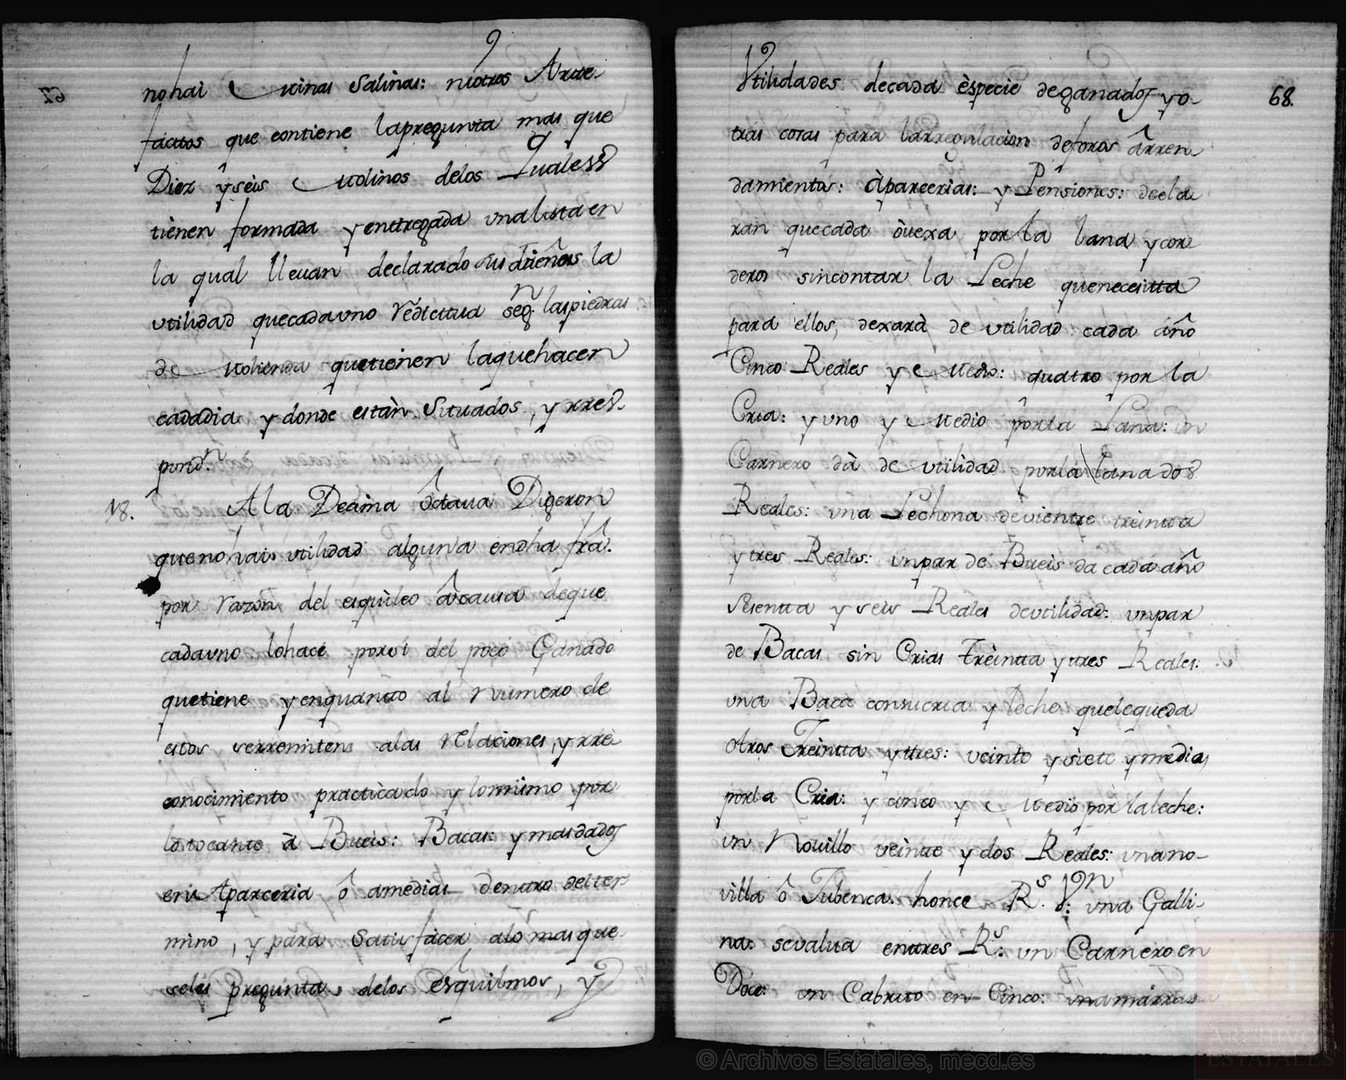 nohai Minas Salinas: niotros Arte-
factos que contiene lapregunta mas que
Diez ÿseis Molinos delos Quales
tienen formada yentregada vnalista en
la qual lleuan declarado sus dueños la
vtilidad quecadauno Redictua segn. laspiedras
de Molienda quetienen laquehacen
cadadia ydonde estàn Situados, yrres-
pondn.
18. Ala Decima Octaua Digeron
quenohai vtilidad alguna endha fra.
por Razon del esquileo âcausa deque
cadauno lohace porsi del poco Ganado
quetiene yenquanto al Numero de
estos serremiten alas Relaciones, yrre
conocimiento practicado ylomismo por
lo tocante à Bueis: Bacas ymasdados
en Aparceria ô amedias dentro delter
mino, ypara Satisfacer alo masque
seles pregunta, delos Esquilmos, y
67
68.
Vtilidades decada èspecie deganados yo-
tras cosas para larregulacion deforos ârren
damientos: àparcerias: y Pensiones: decla
ran quecada òuexa por la lana ycor
deros sincontar la Leche quenecesitta
para ellos, dexarà de vtilidad cada año
Cinco Reales y Medio: quatro por la
Cria: yuno y Medio porla Lana: vn
Carnero dà de vtilidad porla lana dos
Reales: vna Lechona devientre treinta
ytres Reales: vnpar de Bueis da cada año
Sesentta yseis Reales devtilidad: vnpar
de Bacas sin Crias Treintta ytres Reales:
vna Baca consucria y Leche quelequeda
otros Treintta ytres: veinte ysiete ymedia
porla Cria: ycinco y Medio por laleche:
vn Nouillo veinte ydos Reales: vnano-
villa ô Jubenca honce Rs. Vn: vna Galli-
na: sevalua entres Rs: vn Carnero en
Doce: vn Cabrito en Cinco: vnamarra
© Archivos Estatales, mecd.es
ARCHIVOS
ESTATALES